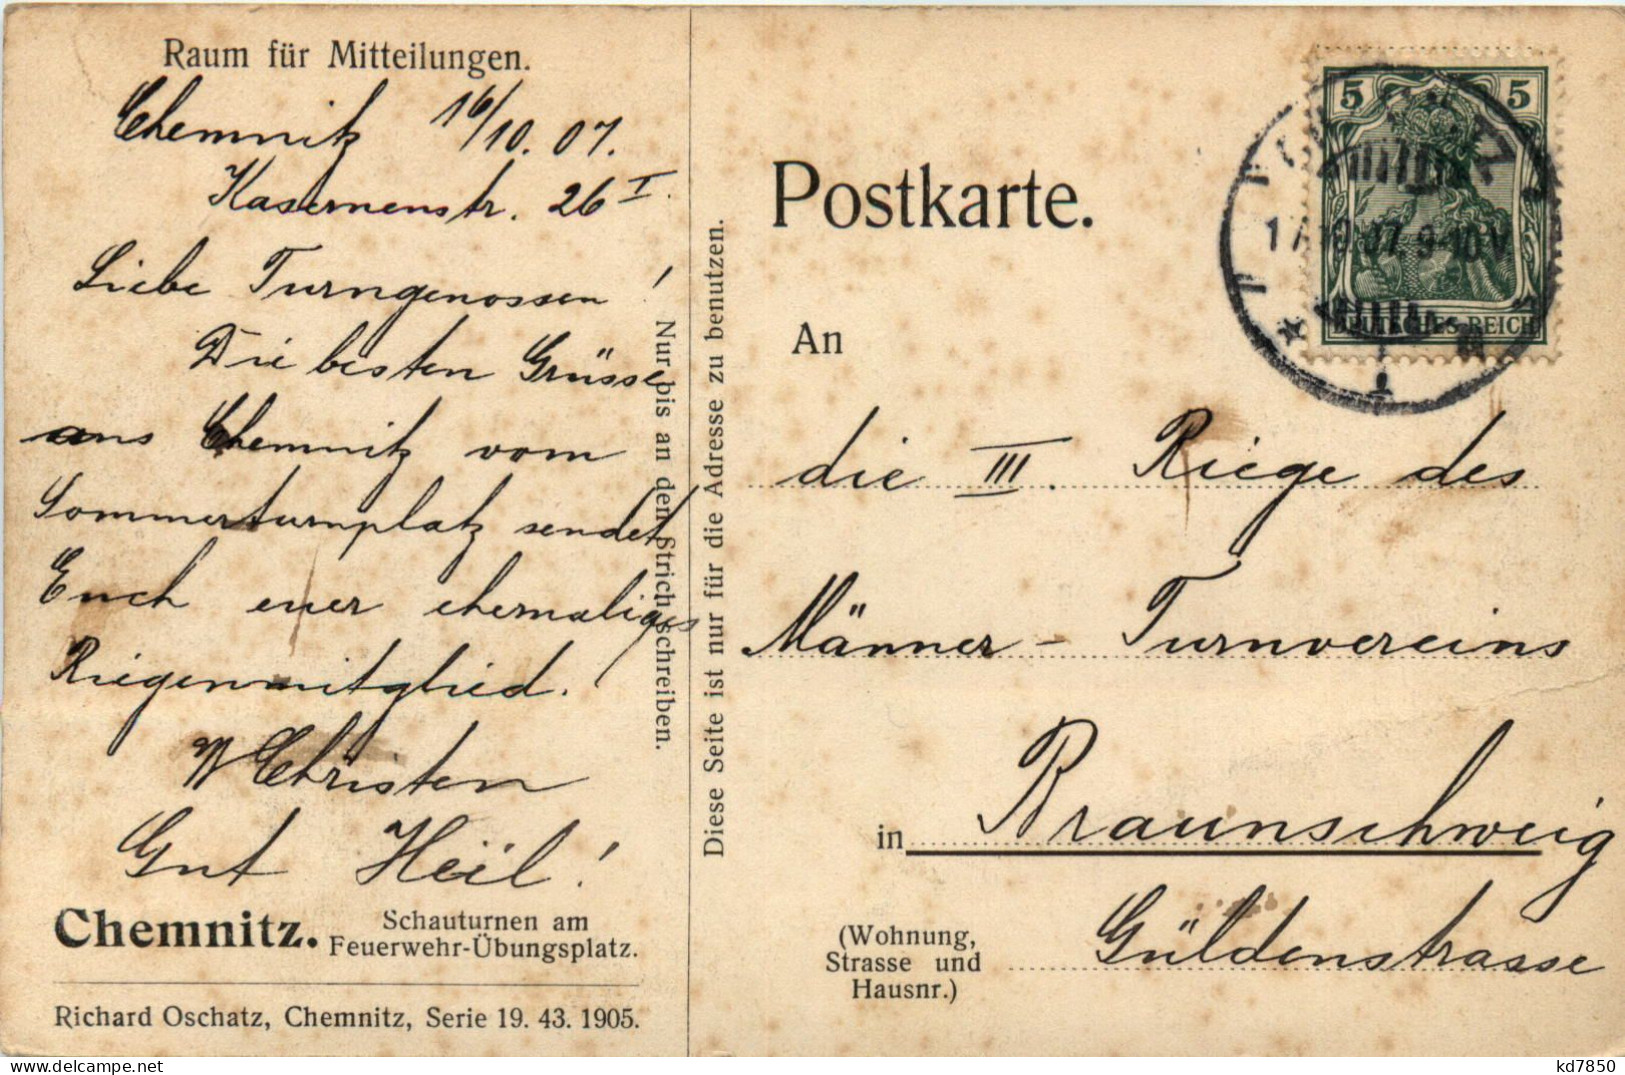 Raum für Mitteilungen.
Chemnitz 16/10. 07.
Kasernenstr. 26 I.
Liebe Turngenossen!
Die besten Grüsse
aus Chemnitz vom
Sommerturnplatz sendet
Euch euer ehemaliges
Riegenmitglied.
W Christen
Gut Heil!
Chemnitz. Schauturnen am
Feuerwehr-Übungsplatz.
Richard Oschatz, Chemnitz, Serie 19. 43. 1905.
Nur bis an den Strich schreiben.
Diese Seite ist nur für die Adresse zu benutzen.
Postkarte.
5 5
DEUTSCHES REICH
An
die III. Riege des
Männer-Turnvereins
in Braunschweig
(Wohnung,
Strasse und
Hausnr.)
Güldenstrasse
kd7850